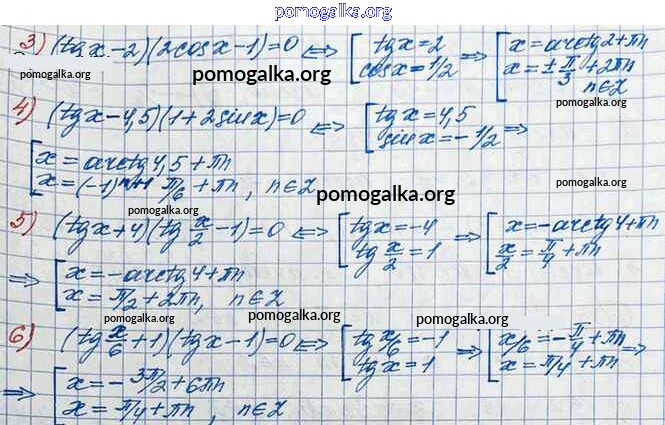 pomogalka.org
3) (tg x - 2)(2cos x - 1) = 0 <=> [ tg x = 2 ; cos x = 1/2 => [ x = arctg 2 + πn ; x = ± π/3 + 2πn
n ∈ Z
pomogalka.org
pomogalka.org
pomogalka.org
4) (tg x - 4,5)(1 + 2 sin x) = 0 <=> [ tg x = 4,5 ; sin x = -1/2 =>
pomogalka.org
[ x = arctg 4,5 + πn ; x = (-1)ⁿ⁺¹ π/6 + πn, n ∈ Z
pomogalka.org
pomogalka.org
pomogalka.org
5) (tg x + 4)(tg x/2 - 1) = 0 <=> [ tg x = -4 ; tg x/2 = 1 => [ x = -arctg 4 + πn ; x/2 = π/4 + πn
=> [ x = -arctg 4 + πn ; x = π/2 + 2πn, n ∈ Z
pomogalka.org
pomogalka.org
pomogalka.org
6) (tg x/6 + 1)(tg x - 1) = 0 <=> [ tg x/6 = -1 ; tg x = 1 => [ x/6 = -π/4 + πn ; x = π/4 + πn =>
=> [ x = -3π/2 + 6πn ; x = π/4 + πn, n ∈ Z
pomogalka.org
pomogalka.org